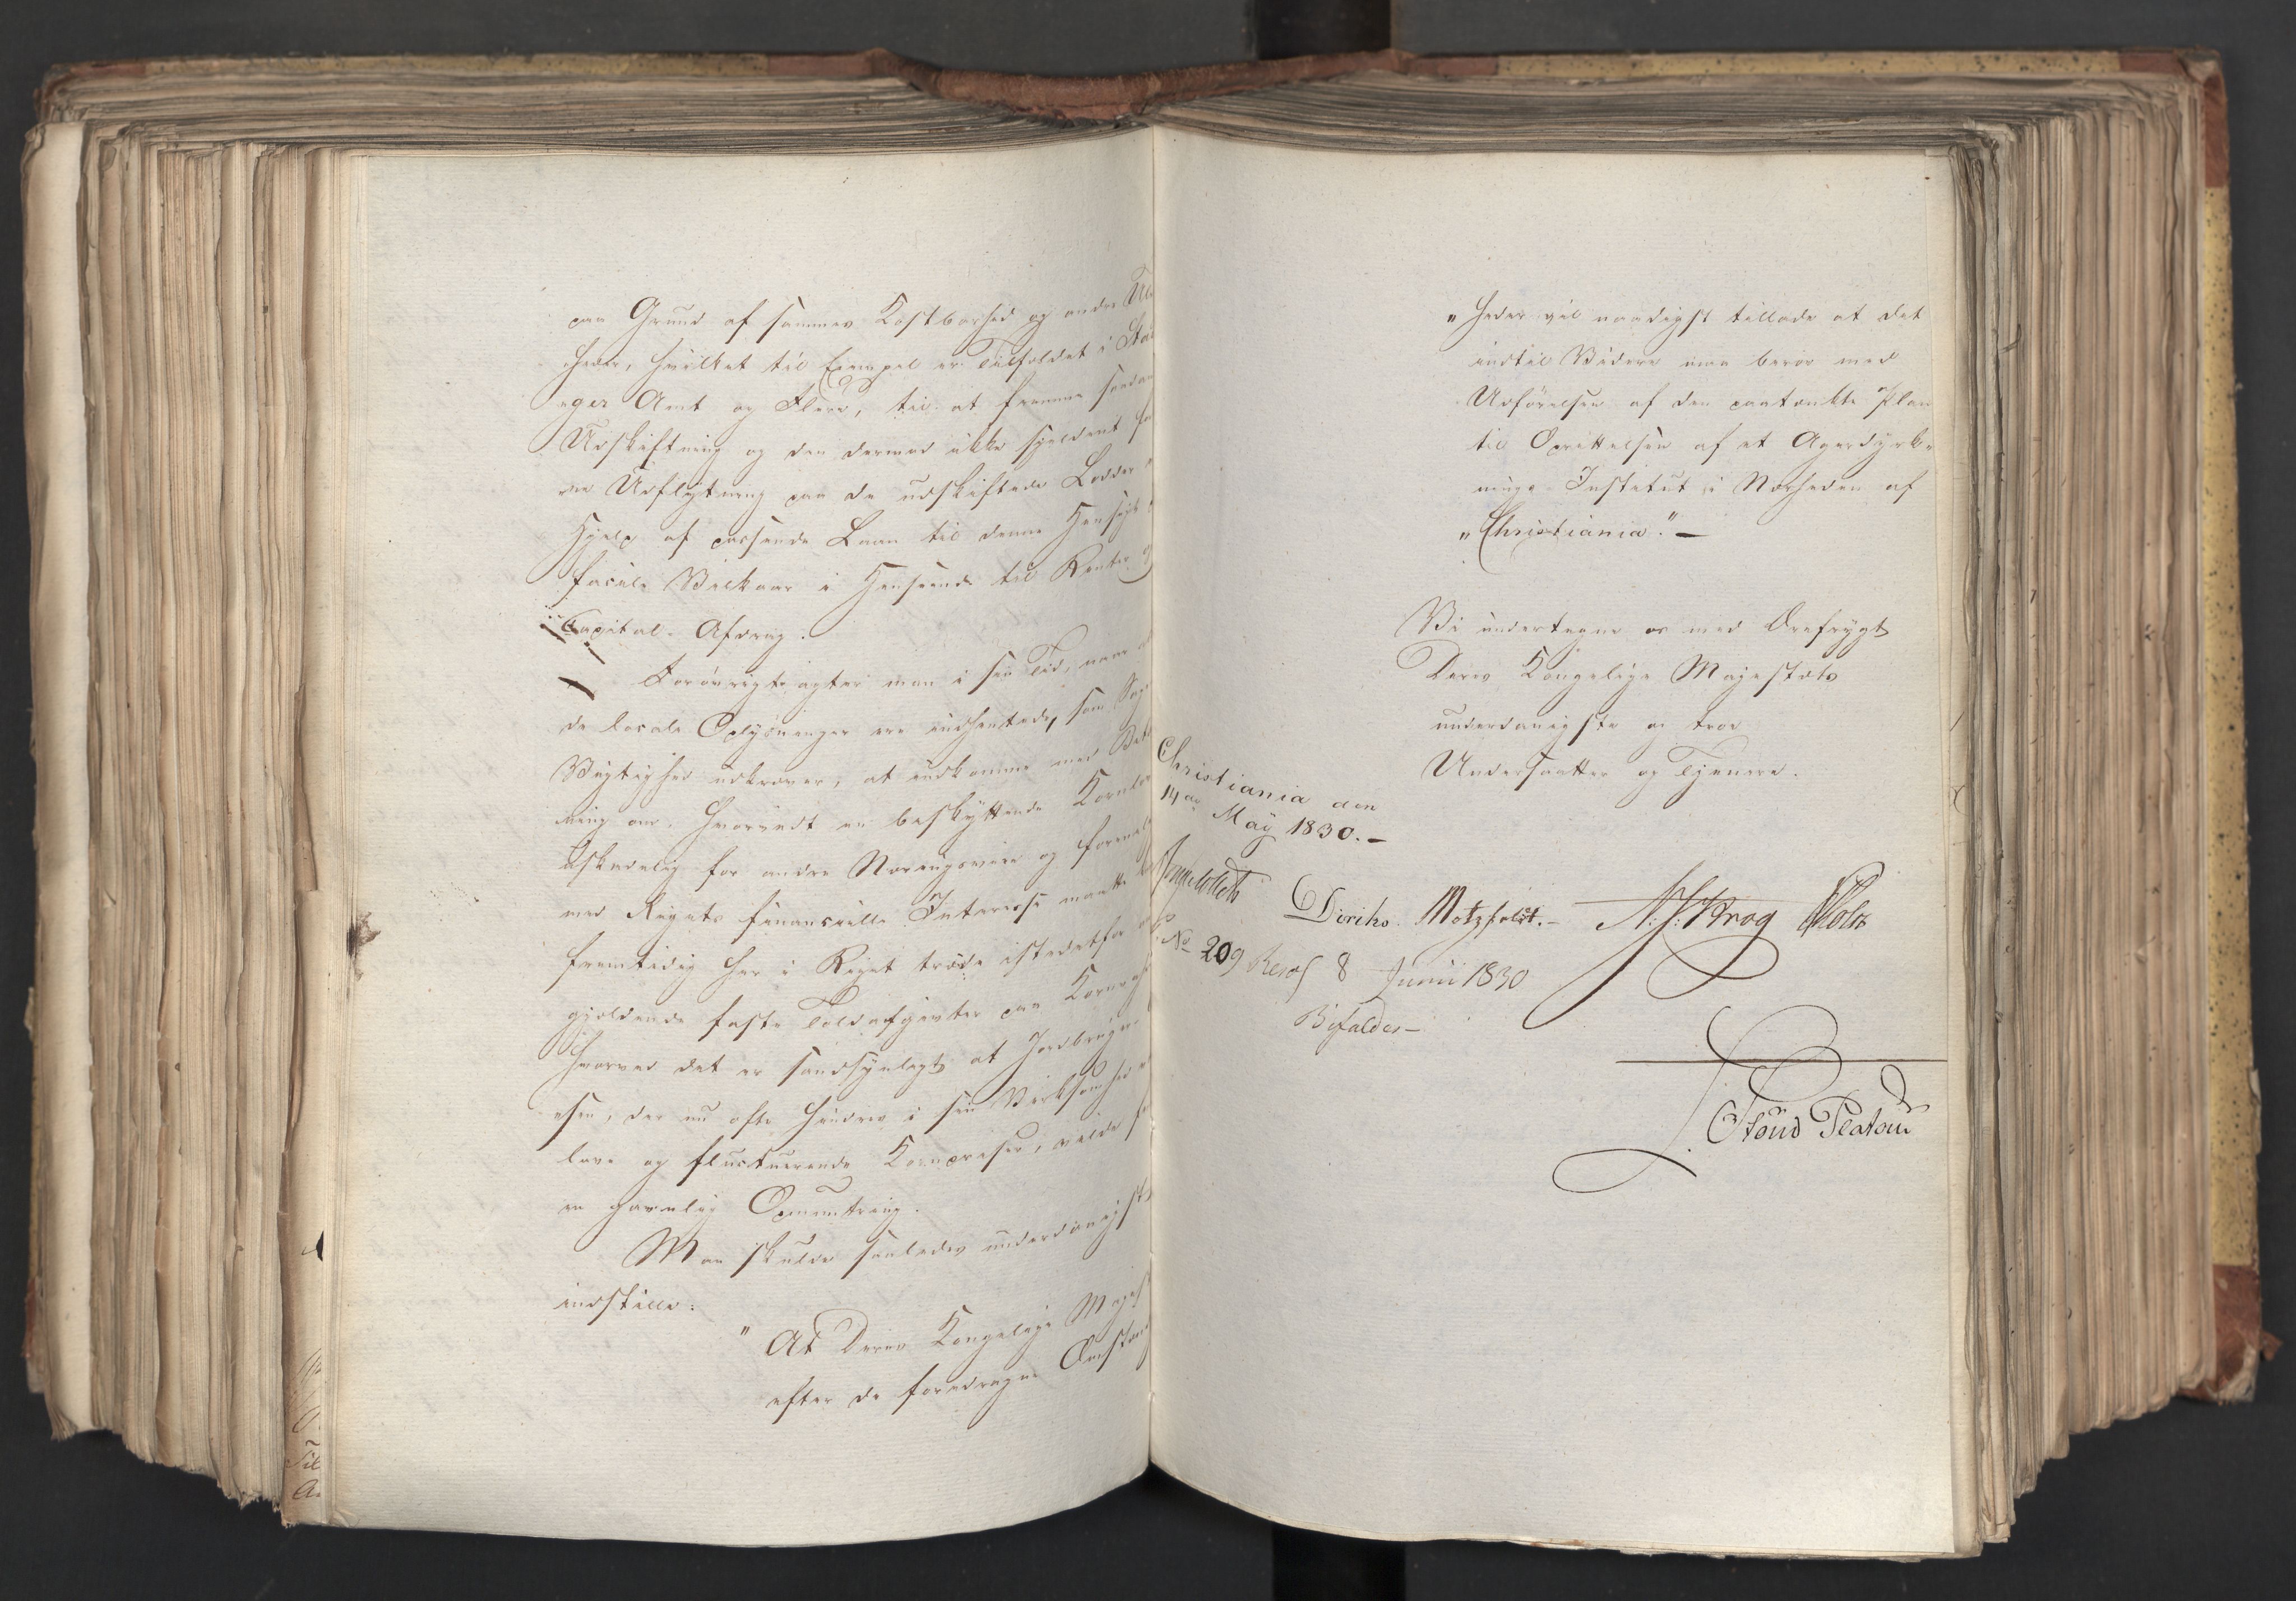 paa Grund af sammes Kostbarhed og andre
heder, hvilket til Exempel er Tilfældet i
ger Amt og Flere, til at fremme saadan
Udskiftning og den dermed ikke sjeldent
Udflytning paa de udskiftede Lodder
Hjelp af passende Laan til denne Hensigt
facile Vilkaar i Henseende til Renter og
Capital-Afdrag.
Forövrigt agter man i sin Tid, naar
de locale Oplysninger ere indhentede, som
Vigtighed udkræver, at indkomme med
ning om, hvorvidt en beskyttende
uskadelig for andre Næringsveie og
med Rigets finansielle Interesse maatte
fremtidig her i Riget træde istedetfor
gjeldende faste Toldafgivter paa
hvorved det er sandsynligt at
sen, der nu ofte hindres i sin Virksomhed
lave og fluctuerende Kornpriser, vilde
en gavnlig Opmuntring.
Man skulde saaledes underdanigst
indstille:
" At Deres Kongelige
efter de foredragne
" heder vil naadigst tillade at det
indtil Videre maa beroe med
Udförelsen af den paatænkte Plan
til Oprettelsen af et Agerdyrk-
nings-Institut i Nærheden af
"Christiania." —
Vi undertegne os med Ærefrygt
Deres Kongelige Majestæts
underdanigste og troe
Undersaatter og Tjenere.
Christiania den
14de May 1830. —
Diriks. Motzfeldt. — Krog Holst
No 209 Resol 8 Junii 1830
Bifaldes —
Stoud Platou